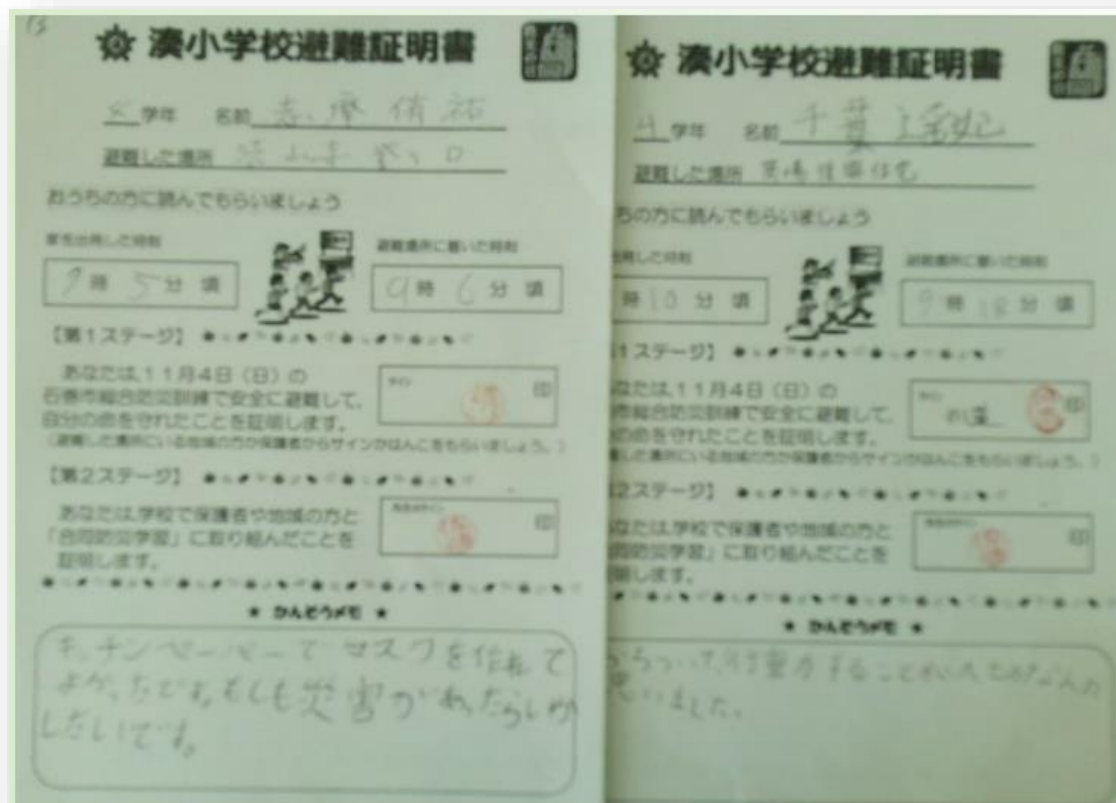 湊小学校避難証明書
学年 名前
避難した場所
おうちの方に読んでもらいましょう
家を出発した時刻 避難場所に着いた時刻
9時5分頃 9時6分頃
【第1ステージ】
あなたは、11月4日(日)の
石巻市総合防災訓練で安全に避難して、
自分の命を守れたことを証明します。
(避難した場所にいる地域の方か保護者からサインかはんこをもらいましょう。)
サイン 印
【第2ステージ】
あなたは、学校で保護者や地域の方と
「合同防災学習」に取り組んだことを
証明します。
印
★ かんそうメモ ★
キッチンペーパーでマスクを作れて
よかったです。もしも災害があったらいか
したいです。
湊小学校避難証明書
4学年 名前 千葉
避難した場所
ちの方に読んでもらいましょう
発した時刻 避難場所に着いた時刻
時10分頃 9時18分頃
1ステージ】
なたは、11月4日(日)の
市総合防災訓練で安全に避難して、
の命を守れたことを証明します。
した場所にいる地域の方か保護者からサインかはんこをもらいましょう。)
サイン 印
2ステージ】
なたは、学校で保護者や地域の方と
合同防災学習」に取り組んだことを
明します。
印
★ かんそうメモ ★
ことが大せつなんだ
思いました。